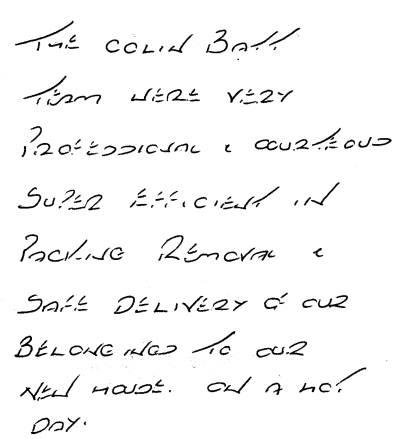 THE COLIN BATT
TEAM WERE VERY
PROFESSIONAL & COURTEOUS
SUPER EFFICIENT IN
PACKING REMOVAL &
SAFE DELIVERY OF OUR
BELONGINGS TO OUR
NEW HOUSE. ON A HOT
DAY.